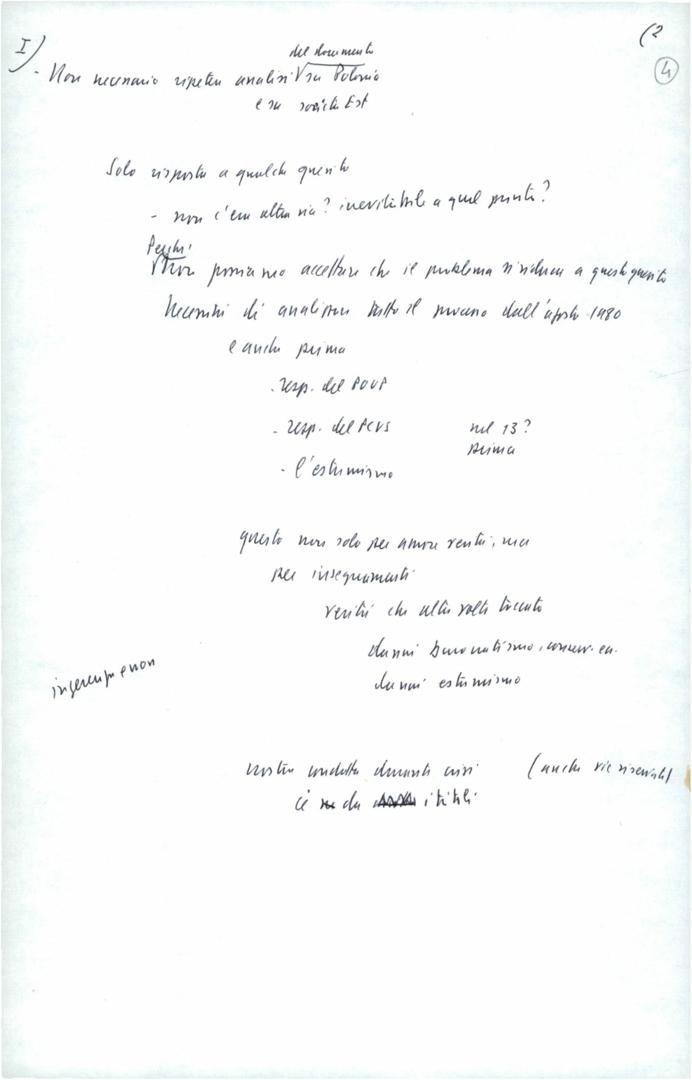 I)
(2
4
del documento
- Non necessario ripetere analisi √ su Polonia
e su società Est
Solo risposta a qualche quesito
- non c'era altra via? inevitabile a quel punto?
Perché:
√ Non possiamo accettare che il problema si riduca a questo quesito
Necessità di analizzare tutto il processo dall'agosto 1980
e anche prima
- resp. del POUP
- resp. del PCUS nel 13?
prima
- l'estremismo
questo non solo per amore verità, ma
per insegnamenti
verità che altre volte toccato
danni burocratismo, conserv. ecc.
danni estremismo
ingerenze e non
nostra condotta durante crisi (anche vie riservate)
ci da i titoli